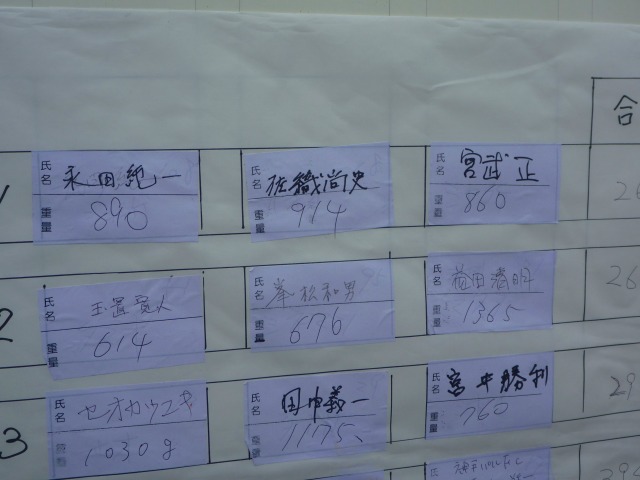 合
1
氏名 永田純一
重量 890
氏名 佐織尚史
重量 914
氏名 宮武正
重量 860
26
2
氏名 玉置寛人
重量 614
氏名 峯松和男
重量 676
氏名 益田清明
重量 1365
26
3
氏名 セオカツユキ
重量 1030g
氏名 田中義一
重量 1175
氏名 宮井勝利
重量 760
29